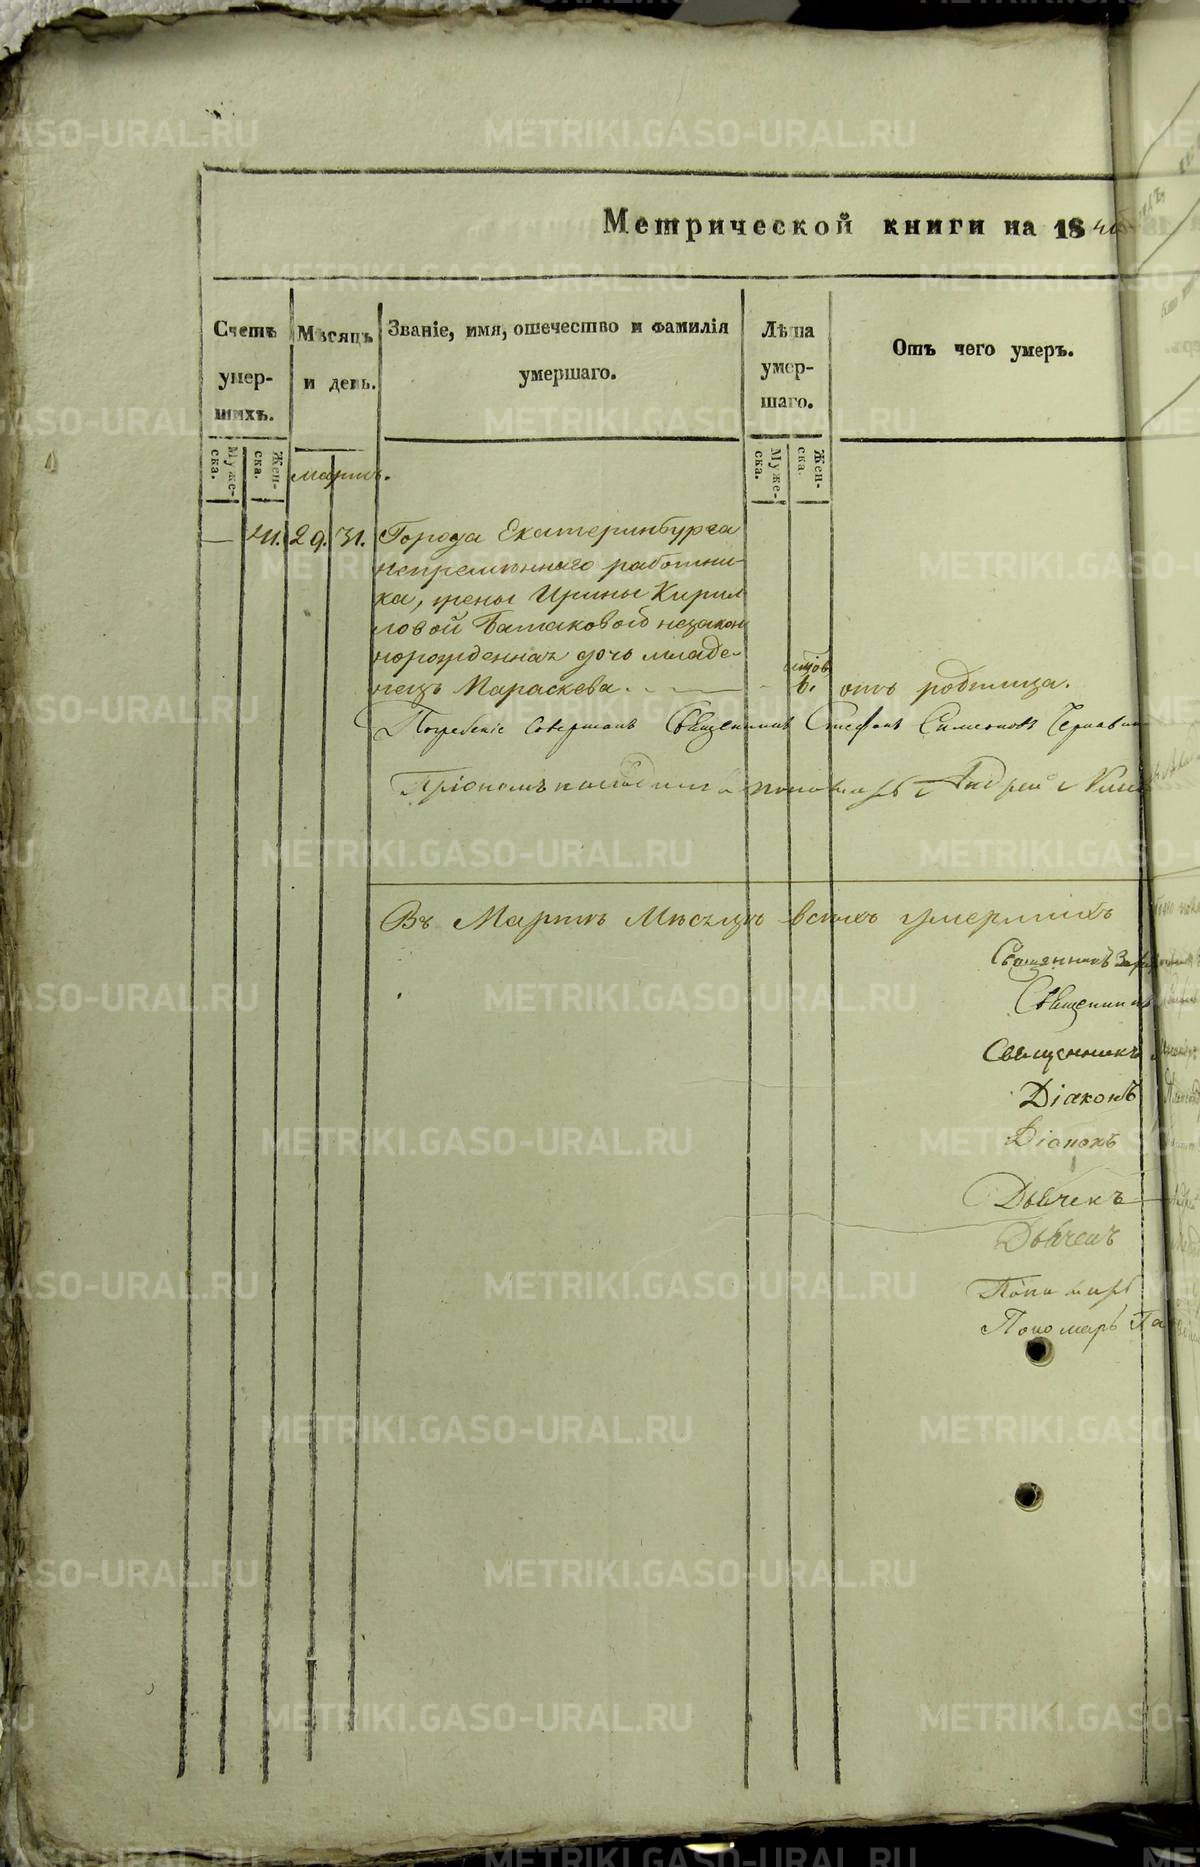 Метрической книги на 184
Счетъ умершихъ.
Мѣсяцъ и день.
Званіе, имя, отечество и фамилія умершаго.
Лѣта умершаго.
Отъ чего умеръ.
Мужеска.
Женска.
Мужеска.
Женска.
мартъ.
— 41. 29. 31. Города Екатеринбурга
непремѣннаго работни-
ка, жены Ирины Кирил
ловой незакон
норожденная дочь младе-
нецъ Параскева. 6. отъ родимца.
Погребеніе совершалъ Священникъ Стефанъ Симеоновъ
пономарь Андрей
Въ Мартѣ Мѣсяцѣ всѣхъ умершихъ
Священникъ
Священникъ
Священникъ
Діаконъ
Діаконъ
Дьячекъ
Дьячекъ
Пономарь
Пономарь
METRIKI.GASO-URAL.RU